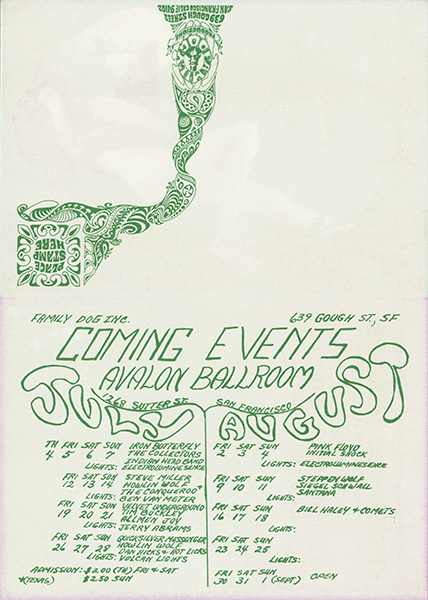 639 GOUGH STREET
SAN FRANCISCO CALIF 94102
PLACE
STAMP
HERE
FAMILY DOG INC.
639 GOUGH ST., SF
COMING EVENTS
AVALON BALLROOM
1268 SUTTER ST.
SAN FRANCISCO
JULY
AUGUST
TH FRI SAT SUN
4 5 6 7
IRON BUTTERFLY
THE COLLECTORS
INDIAN HEAD BAND
LIGHTS: ELECTROLUMINESENCE
FRI SAT SUN
12 13 14
STEVE MILLER
HOWLIN WOLF
THE CONQUEROO *
LIGHTS: BEN VAN METER
FRI SAT SUN
19 20 21
VELVET UNDERGROUND
TIM BUCKLEY
ALLMEN JOY
LIGHTS: JERRY ABRAMS
FRI SAT SUN
26 27 28
QUICKSILVER MESSENGER
HOWLIN WOLF
DAN HICKS & HOT LICKS
LIGHTS: VULCAN LIGHTS
ADMISSION: $3.00 (TH) FRI & SAT
$2.50 SUN
*(TEXAS)
FRI SAT SUN
2 3 4
PINK FLOYD
INITIAL SHOCK
LIGHTS: ELECTROLUMINESENCE
FRI SAT SUN
9 10 11
STEPPEN WOLF
SIEGEL SCHWALL
SANTANA
LIGHTS:
FRI SAT SUN
16 17 18
BILL HALEY & COMETS
LIGHTS:
FRI SAT SUN
23 24 25
LIGHTS:
FRI SAT SUN
30 31 1 (SEPT) OPEN